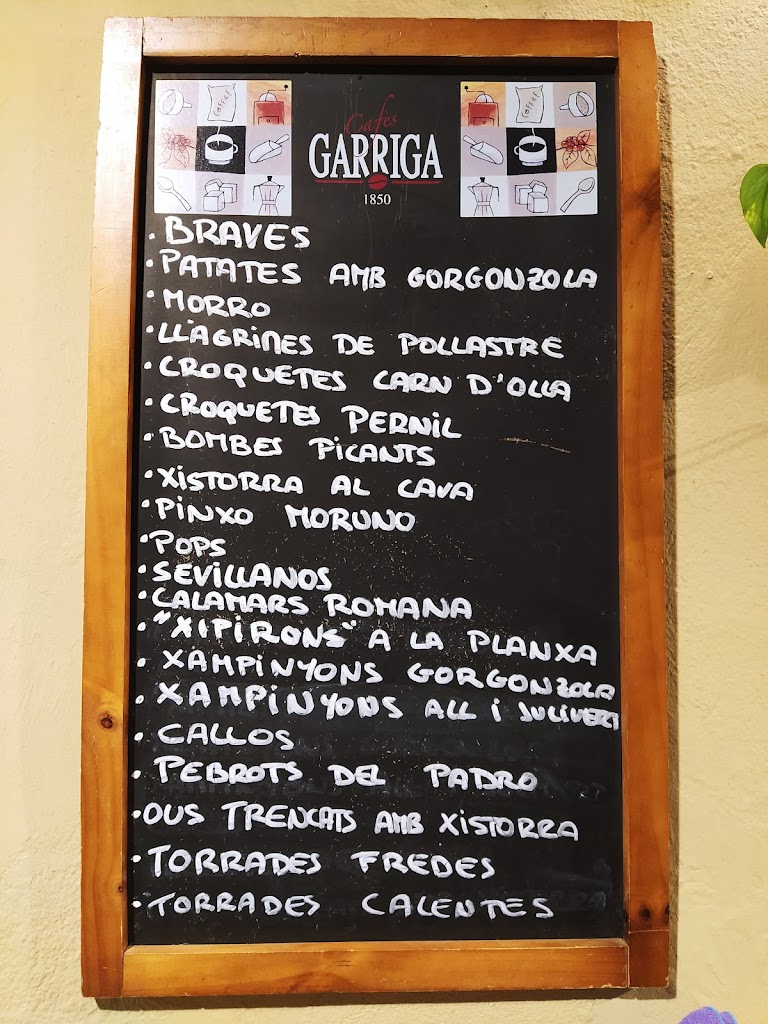 COFFEE
Cafes
COFFEE
GARRIGA
1850
· BRAVES
· PATATES AMB GORGONZOLA
· MORRO
· LLAGRIMES DE POLLASTRE
· CROQUETES CARN D'OLLA
· CROQUETES PERNIL
· BOMBES PICANTS
· XISTORRA AL CAVA
· PINXO MORUNO
· POPS
· SEVILLANOS
· CALAMARS ROMANA
· "XIPIRONS" A LA PLANXA
· XAMPINYONS GORGONZOLA
· XAMPINYONS ALL I JULIVERT
· CALLOS
· PEBROTS DEL PADRO
· OUS TRENCATS AMB XISTORRA
· TORRADES FREDES
· TORRADES CALENTES